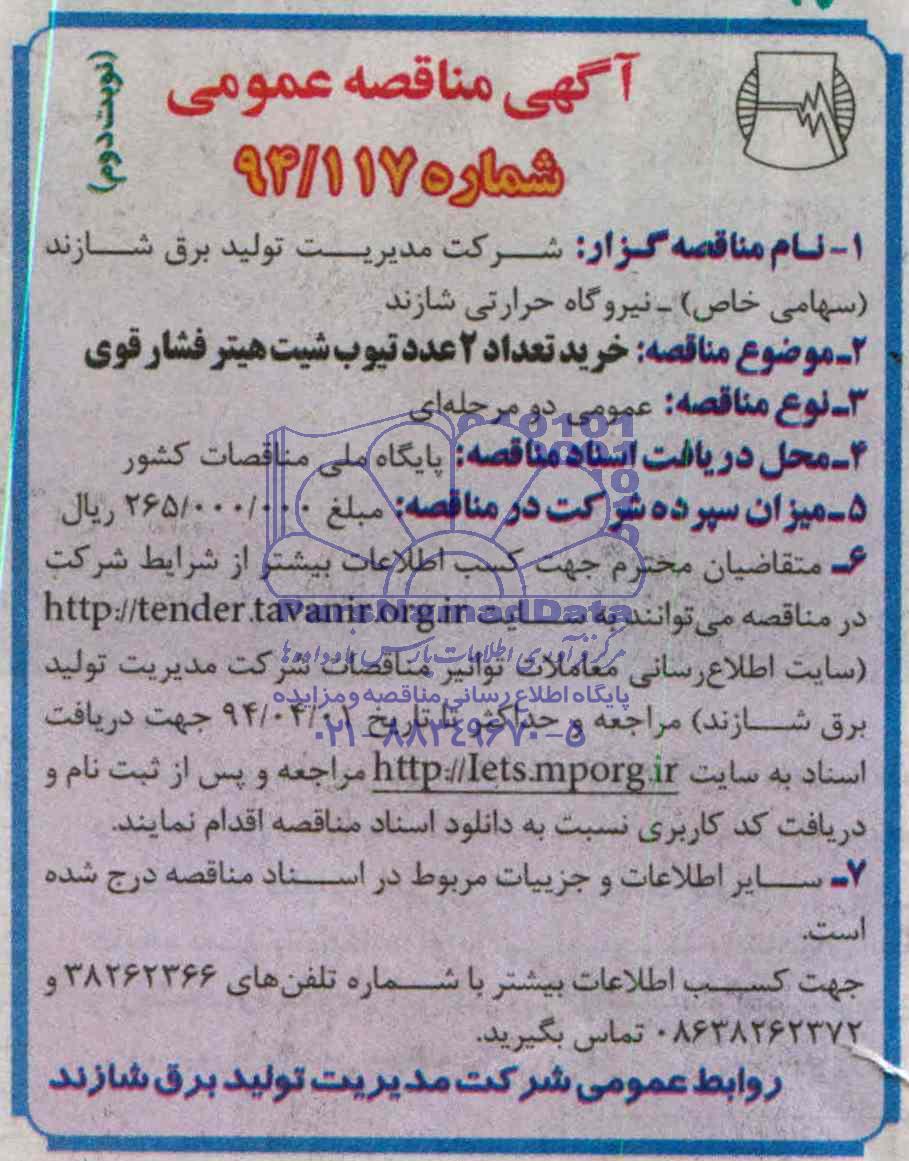 (نوبت دوم)
آگهی مناقصه عمومی
شماره ۹۴/۱۱۷
۱- نـام مناقصه گـزار: شــرکت مدیریـــت تولید برق شــازند
(سهامی خاص) ـ نیروگاه حرارتی شازند
۲ـ موضوع مناقصه: خرید تعداد ۲ عدد تیوب شیت هیتر فشار قوی
۳ـ نوع مناقصه: عمومی دو مرحله‌ای
۴ـ محل دریافت اسناد مناقصه: پایگاه ملی مناقصات کشور
۵ـ میزان سپرده شرکت در مناقصه: مبلغ ۲۶۵/۰۰۰/۰۰۰ ریال
۶ـ متقاضیان محترم جهت کسب اطلاعات بیشتر از شرایط شرکت
در مناقصه می‌توانند به ســایت http://tender.tavanir.org.ir
(سایت اطلاع‌رسانی معاملات توانیر مناقصات شرکت مدیریت تولید
برق شــازند) مراجعه و حداکثر تا تاریخ ۹۴/۰۴/۰۱ جهت دریافت
اسناد به سایت http://Iets.mporg.ir مراجعه و پس از ثبت نام و
دریافت کد کاربری نسبت به دانلود اسناد مناقصه اقدام نمایند.
۷ـ ســایر اطلاعات و جزییات مربوط در اســناد مناقصه درج شده
است.
جهت کســب اطلاعات بیشتر با شــماره تلفن‌های ۳۸۲۶۲۳۶۶ و
۰۸۶۳۸۲۶۲۳۷۲ تماس بگیرید.
روابط عمومی شرکت مدیریت تولید برق شازند
ParsNamadData
مرکز فرآوری اطلاعات پارس نماد داده‌ها
پایگاه اطلاع رسانی مناقصه و مزایده
۰۲۱-۸۸۳۴۹۶۷۰-۵